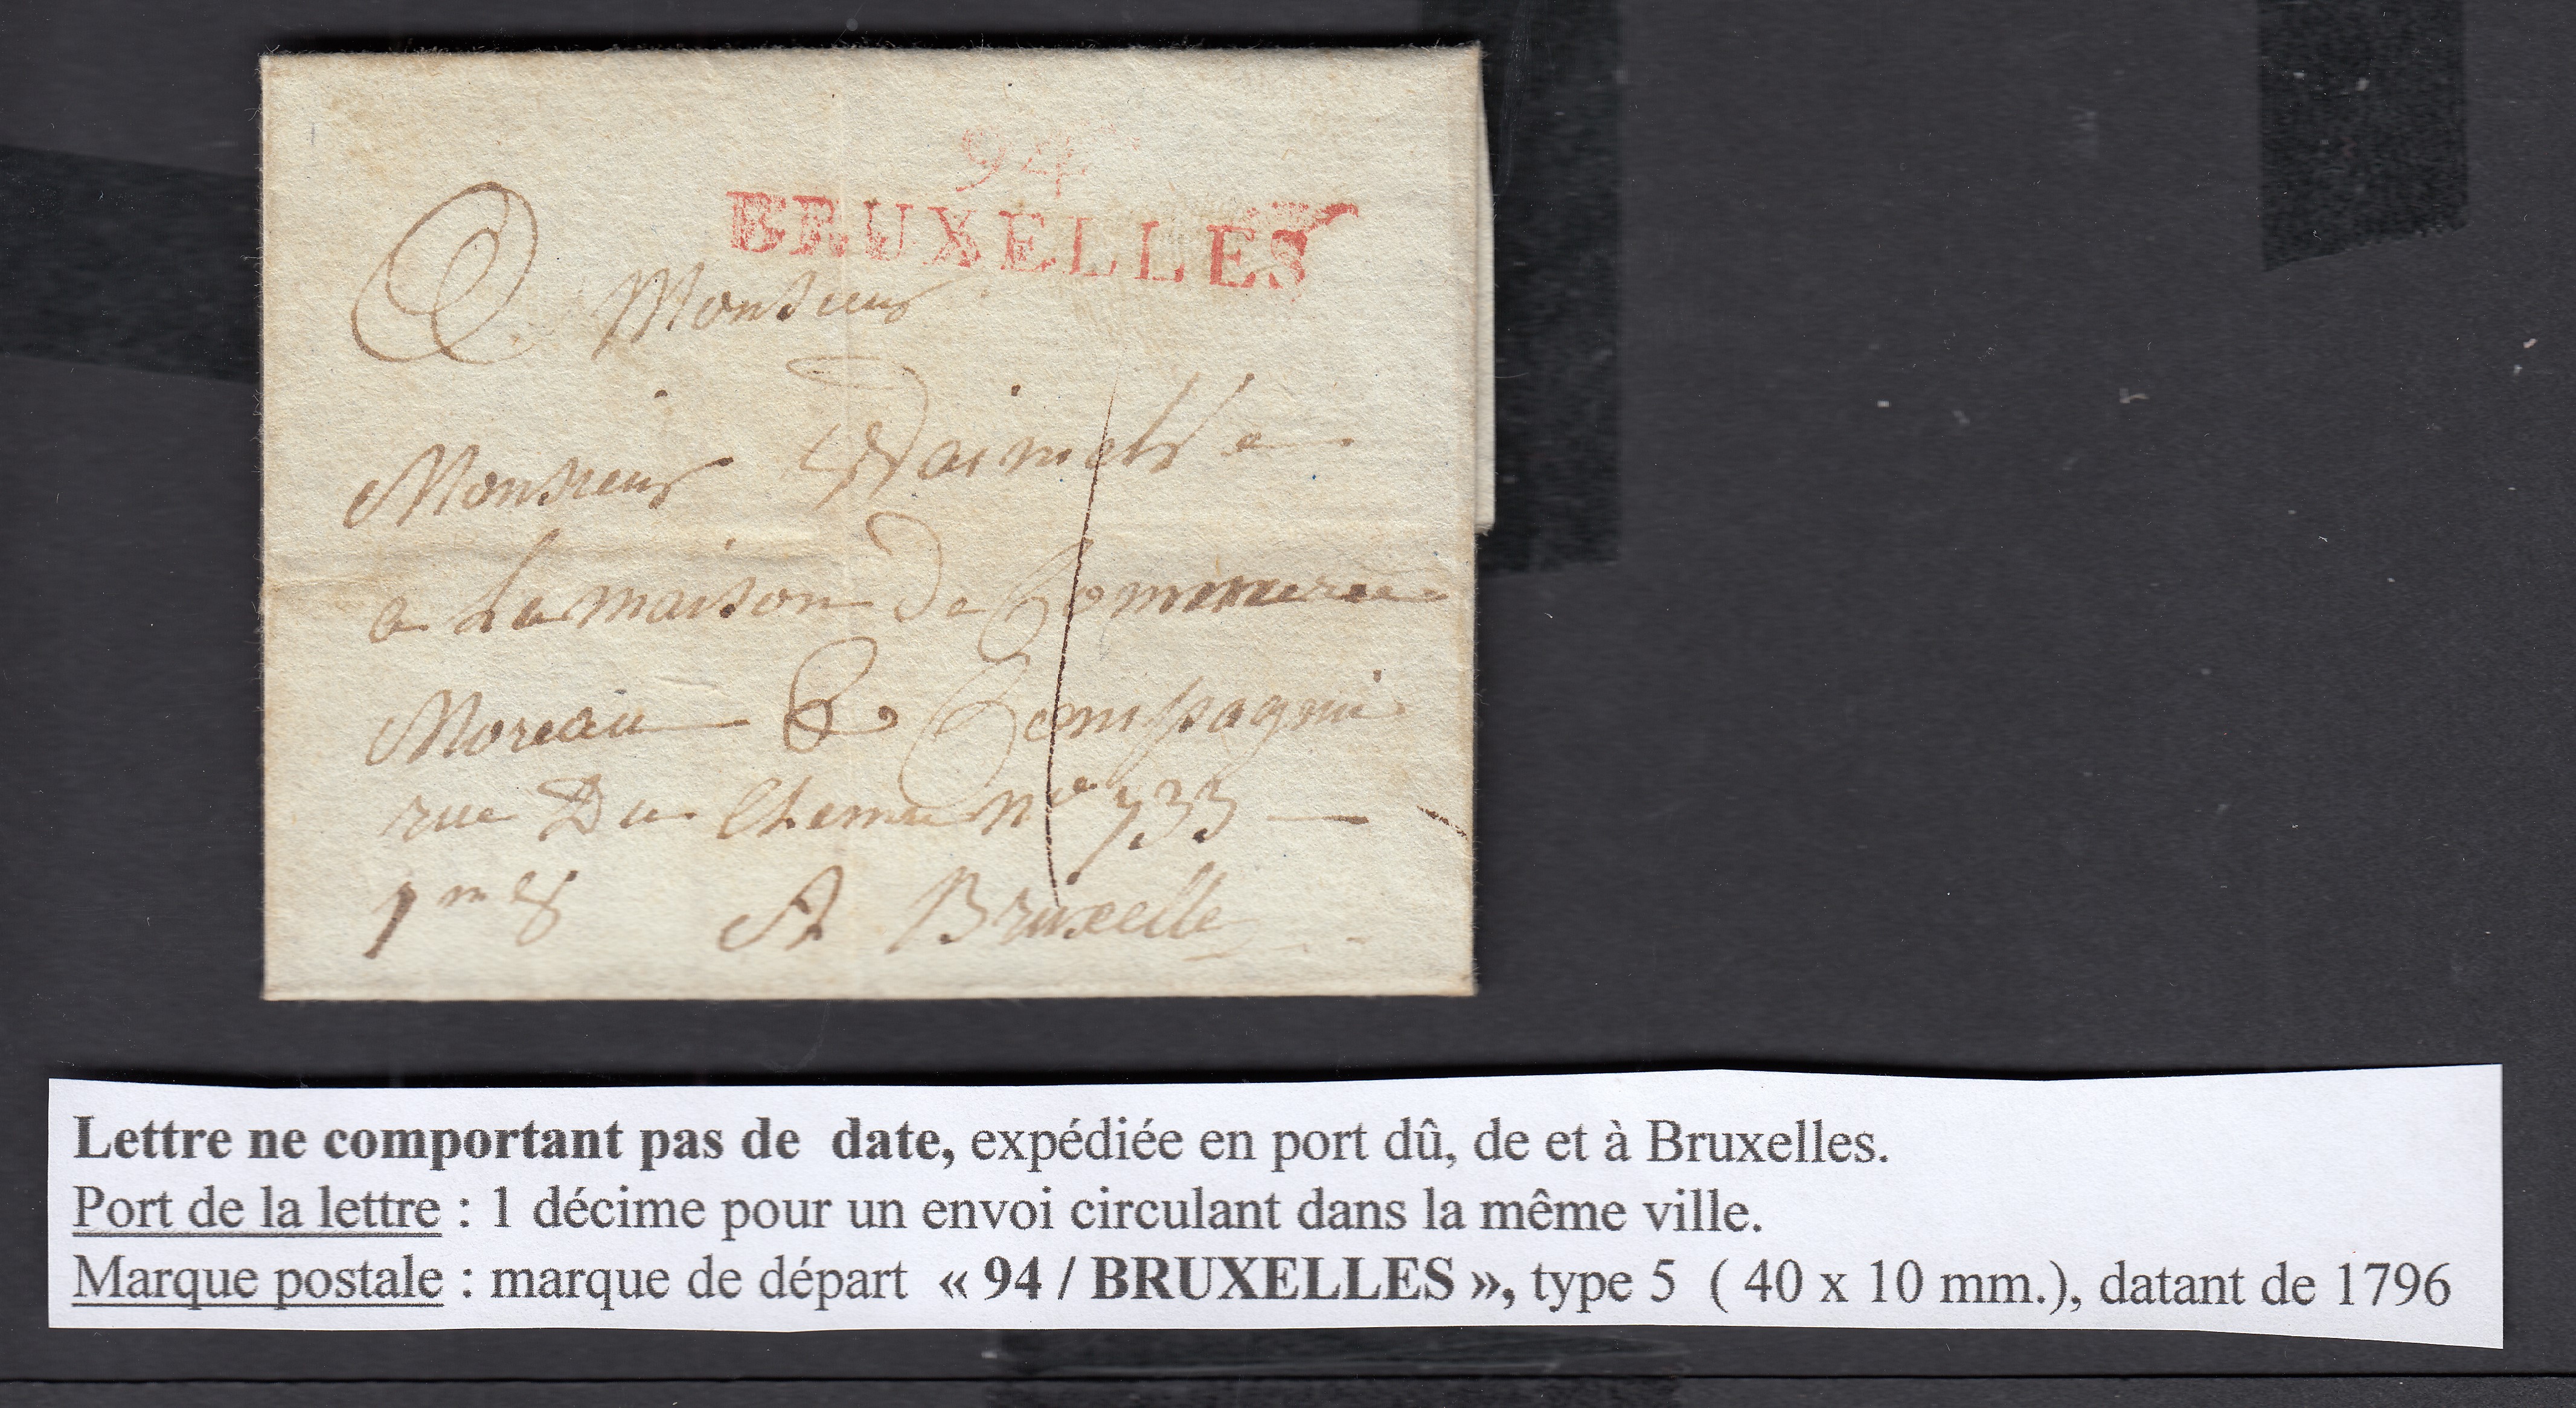 94
BRUXELLES
A Monsieur
Monsieur
a La maison De Commerce
Moreau & Compagnie
rue Du Chemin no 733
A Bruxelle
Lettre ne comportant pas de date, expédiée en port dû, de et à Bruxelles.
Port de la lettre : 1 décime pour un envoi circulant dans la même ville.
Marque postale : marque de départ « 94 / BRUXELLES », type 5 ( 40 x 10 mm.), datant de 1796